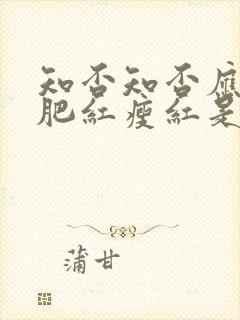 知否知否應
肥紅瘦紅是
蒲甘